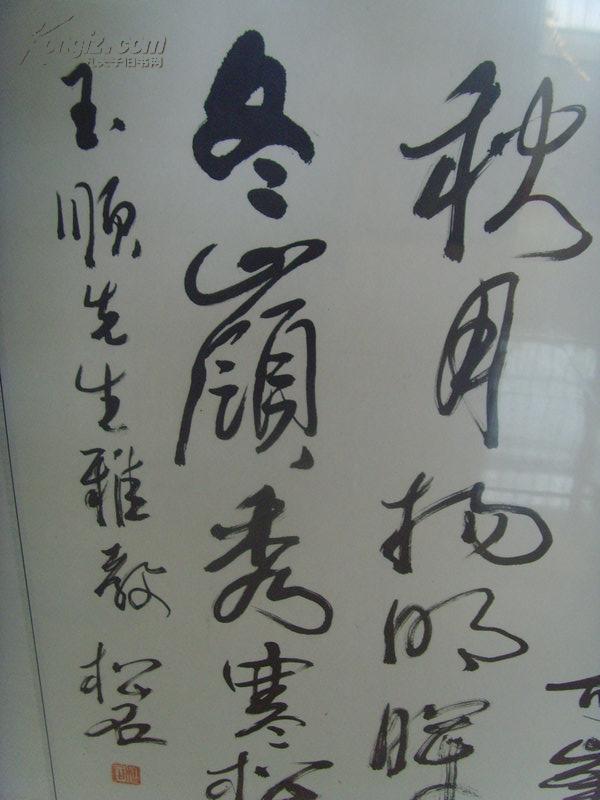 Kongfz.com
孔夫子旧书网
秋月扬明晖
冬嶺秀寒松
玉順先生雅教